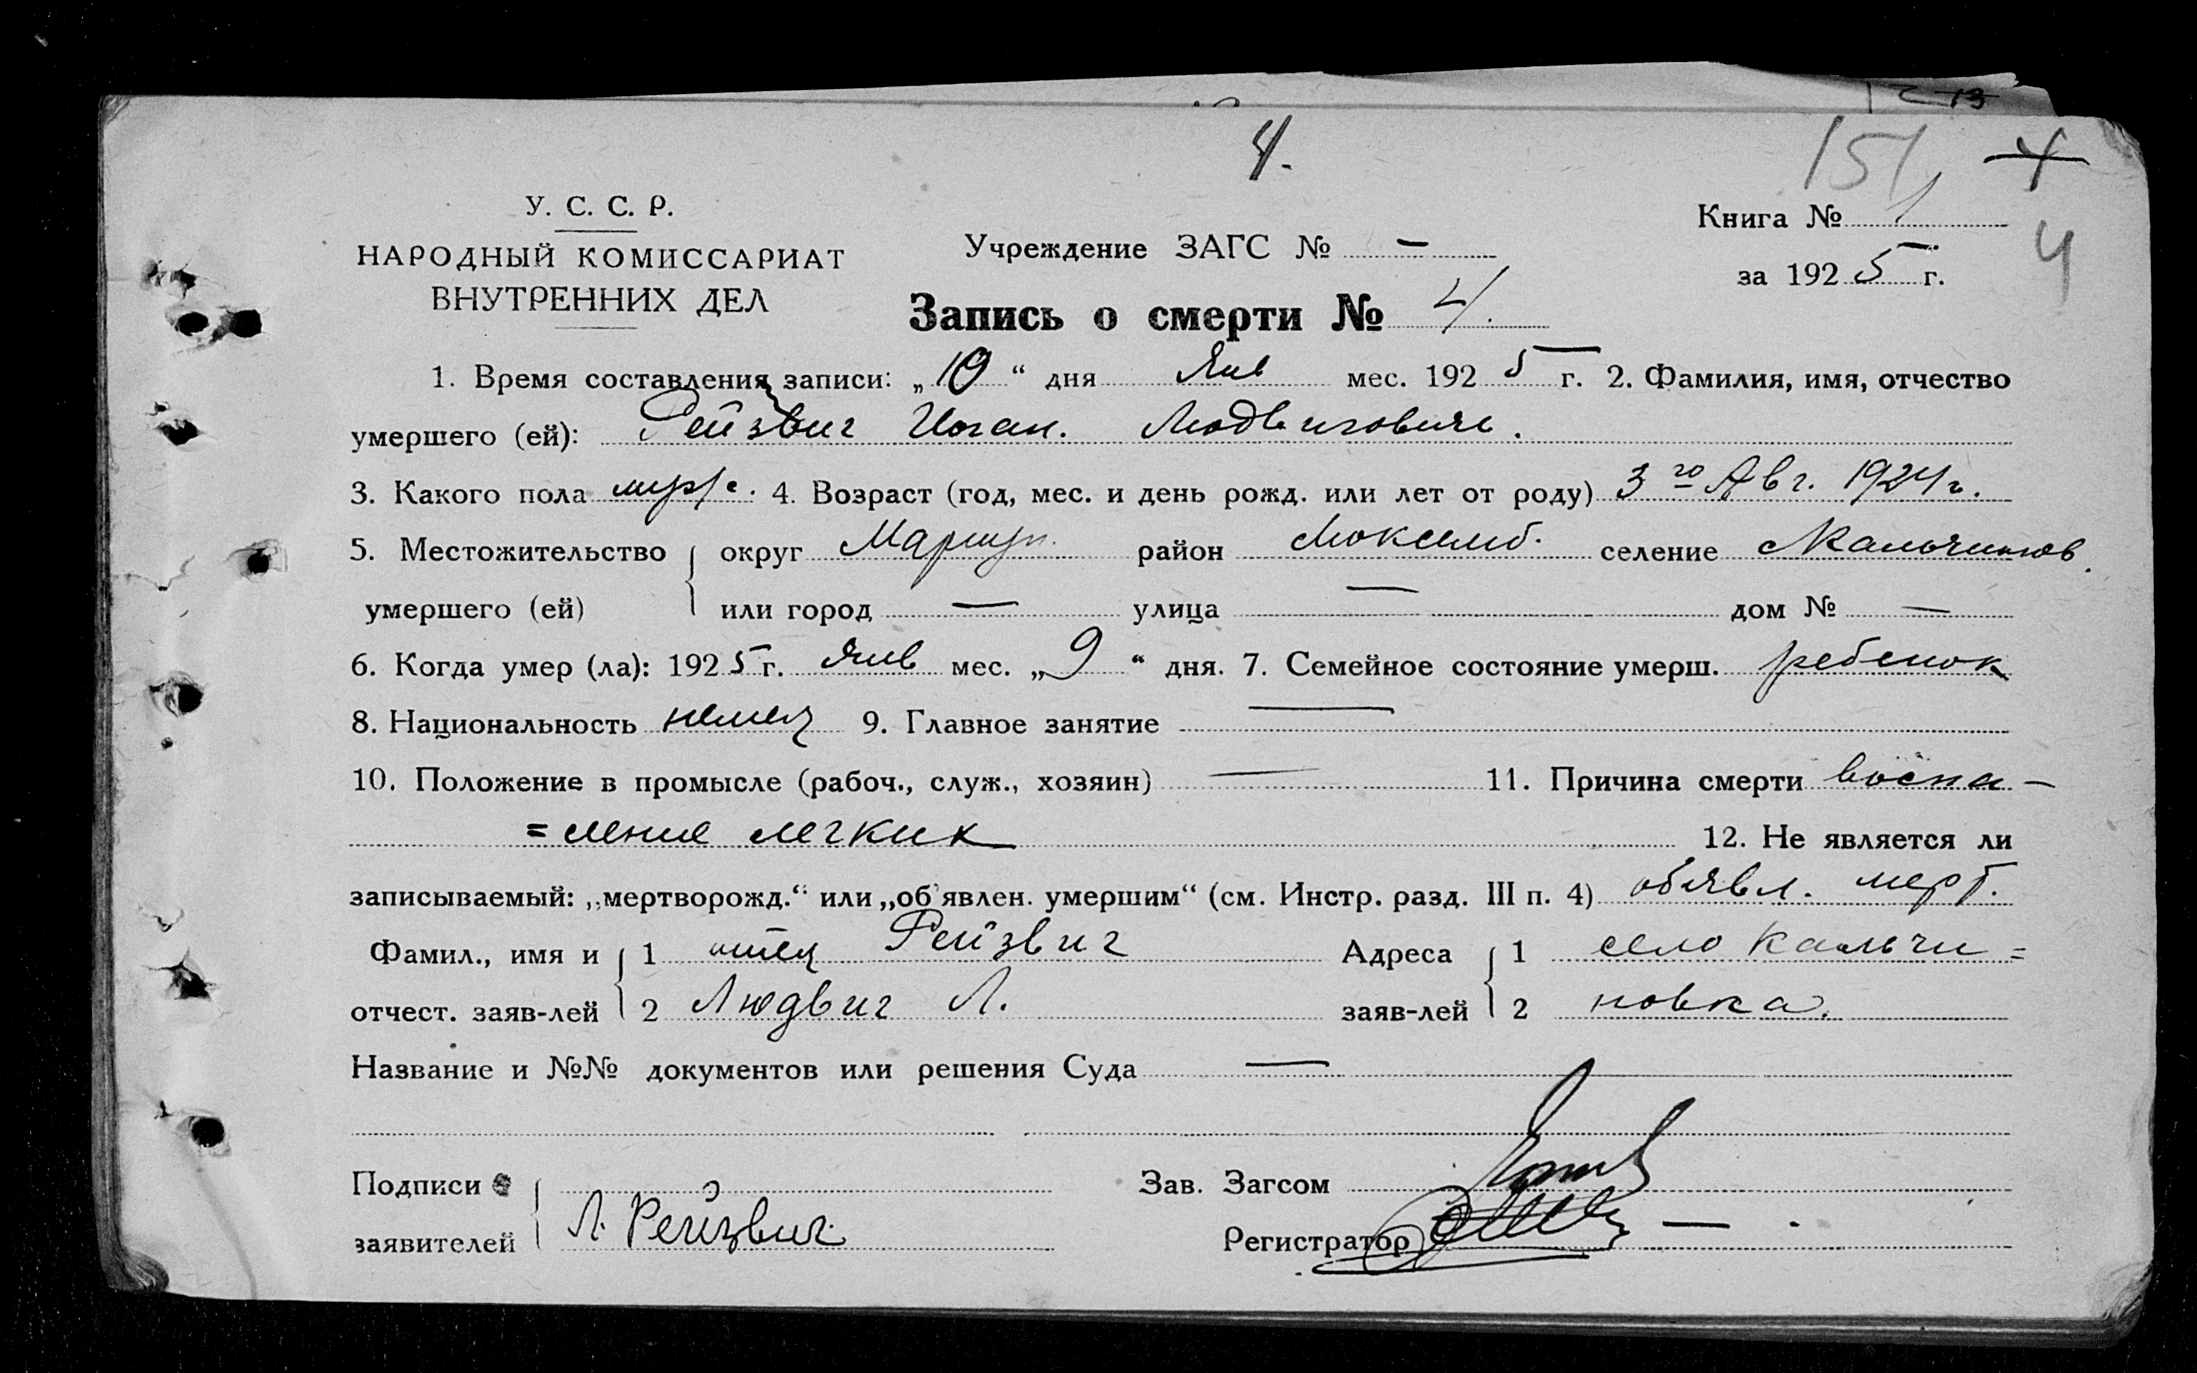 4.
151 4
У. С. С. Р.
НАРОДНЫЙ КОМИССАРИАТ
ВНУТРЕННИХ ДЕЛ
Учреждение ЗАГС № —
Книга № 1
за 1925 г. 4
Запись о смерти № 4.
1. Время составления записи: „10“ дня Янв мес. 1925 г. 2. Фамилия, имя, отчество
умершего (ей): Рейзвиг Иоган. Людвигович.
3. Какого пола муж. 4. Возраст (год, мес. и день рожд. или лет от роду) 3го Авг. 1924 г.
5. Местожительство округ Мариуп. район Люксемб. селение Кальчинов.
умершего (ей) или город — улица — дом № —
6. Когда умер (ла): 1925 г. Янв мес. „9“ дня. 7. Семейное состояние умерш. ребенок
8. Национальность немец 9. Главное занятие —
10. Положение в промысле (рабоч., служ., хозяин) — 11. Причина смерти воспа-
=ление легких 12. Не является ли
записываемый: „мертворожд.“ или „об'явлен. умершим“ (см. Инстр. разд. III п. 4) объявл. мерт.
Фамил., имя и 1 отец Рейзвиг Адреса 1 село Кальчи=
отчест. заяв-лей 2 Людвиг Л. заяв-лей 2 новка.
Название и №№ документов или решения Суда —
Подписи Зав. Загсом
заявителей Л. Рейзвиг Регистратор